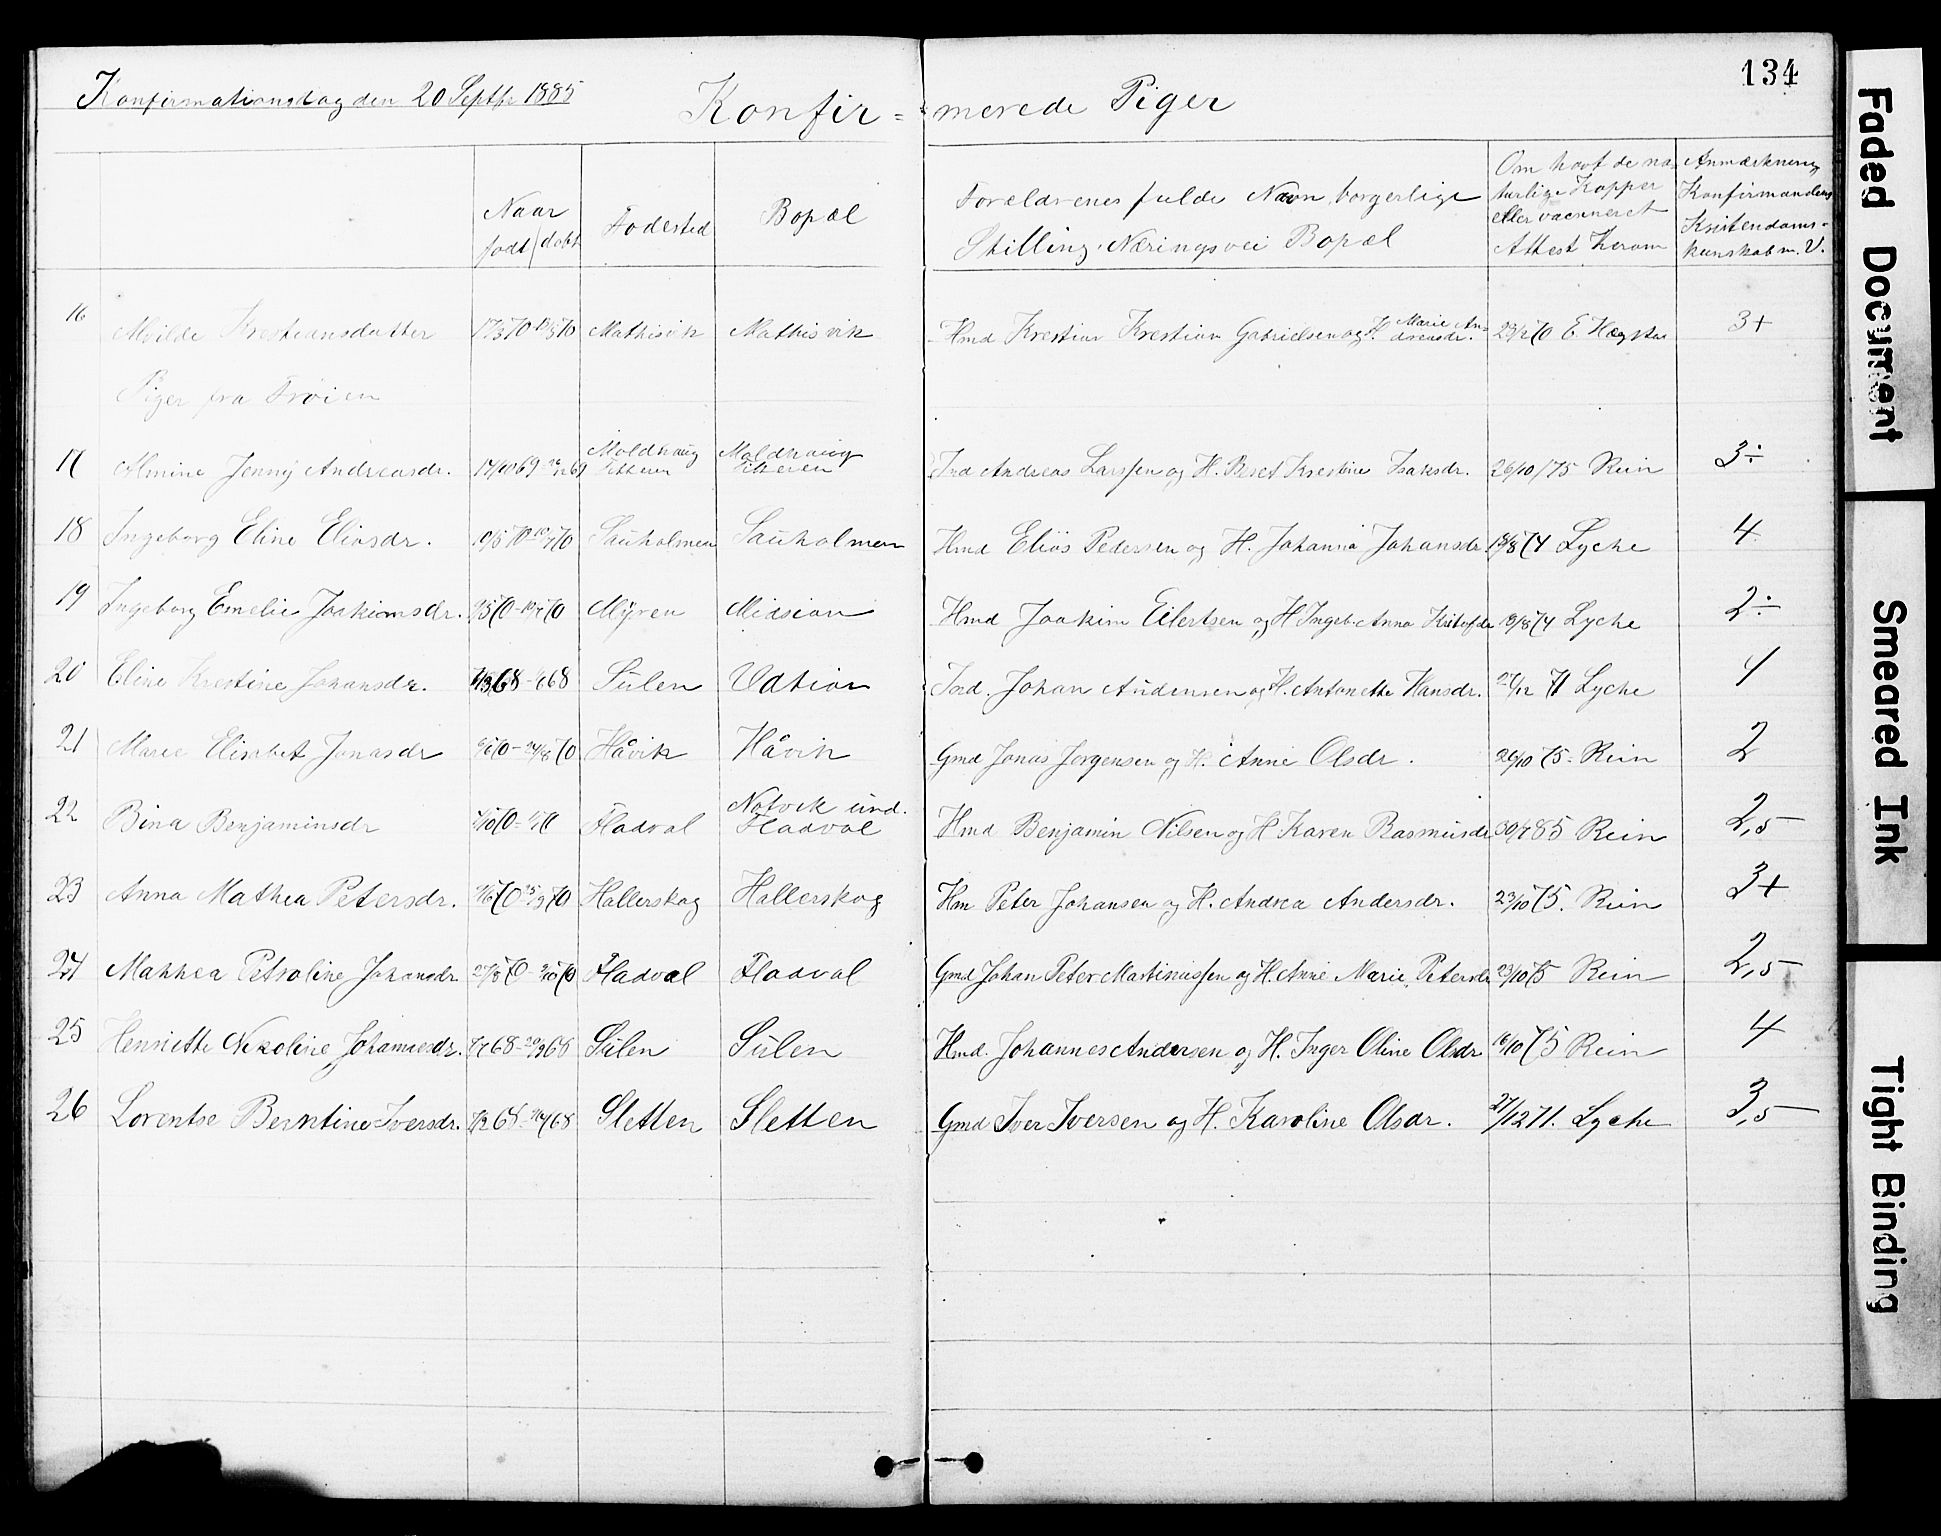 Konfirmationsdag den 20 Septbr 1885
Konfir=
=merede Piger
134
Naar født / døbt
Fødested
Bopæl
Forældrenes fulde Navn, borgerlige Stilling, Næringsvei Bopæl
Om havt de naturlige Kopper eller vaccineret Attest herom
Anmærkning Konfirmandens Kristendomskunskab m. V.
16 Krestiansdatter Mathisvik Mathisvik Hmd Krestian Krestian Gabrielsen og H. Marie Andreasdr. 3+
Piger fra Frøien
17 Almine Jenny Andreasdr. Moldhaug Titteren Moldhaug Titteren Ind Andreas Larssen og H. Beret Krestine Isaksdr. 26/10/75 Rein 3÷
18 Ingeborg Eline Eliasdr. Sauholmen Sauholmen Hmd Elias Pedersen og H. Johanna Johansdr. 18/8 74 Lyche 4
19 Ingeborg Emelie Joakimsdr. Myren Midsian Hmd Joakim Eilertsen og H Ingeb. Anna 19/8 74 Lyche 2÷
20 Eline Krestine Johansdr. Sulen Udtian Ind. Johan Andersen og H. Antonette Hansdr. 71 Lyche
21 Marie Elisabet Jonasdr Håvik Håvik Gmd Jonas Jørgensen og H. Anne Olsdr. 26/10 75. Rein 2
22 Bina Benjaminsdr Fladval Notvik und. Fladval Hmd Benjamin Nilsen og H Karen Rasmusdr 30/7 85 Rein 2,5
23 Anna Mathea Petersdr. Hallerskog Hallerskog Hm Peter Johansen og H. Andrea Andersdr. 23/10 75. Rein 3+
24 Mathea Petroline Johansdr. Fladval Fladval Gmd Johan Peter Martinussen og H. Anne Marie Petersdr 23/10 75 Rein 2,5
25 Henriette Nikoline Johannesdr. Sulen Sulen Hmd. Johannes Andersen og H. Inger Oline Olsdr 16/10 75 Rein 4
26 Lorentse Berntine Iversdr. Sletten Sletten Gmd Iver Iversen og H. Karoline Olsdr. 27/12 71. Lyche 3,5
Faded Document
Smeared Ink
Tight Binding